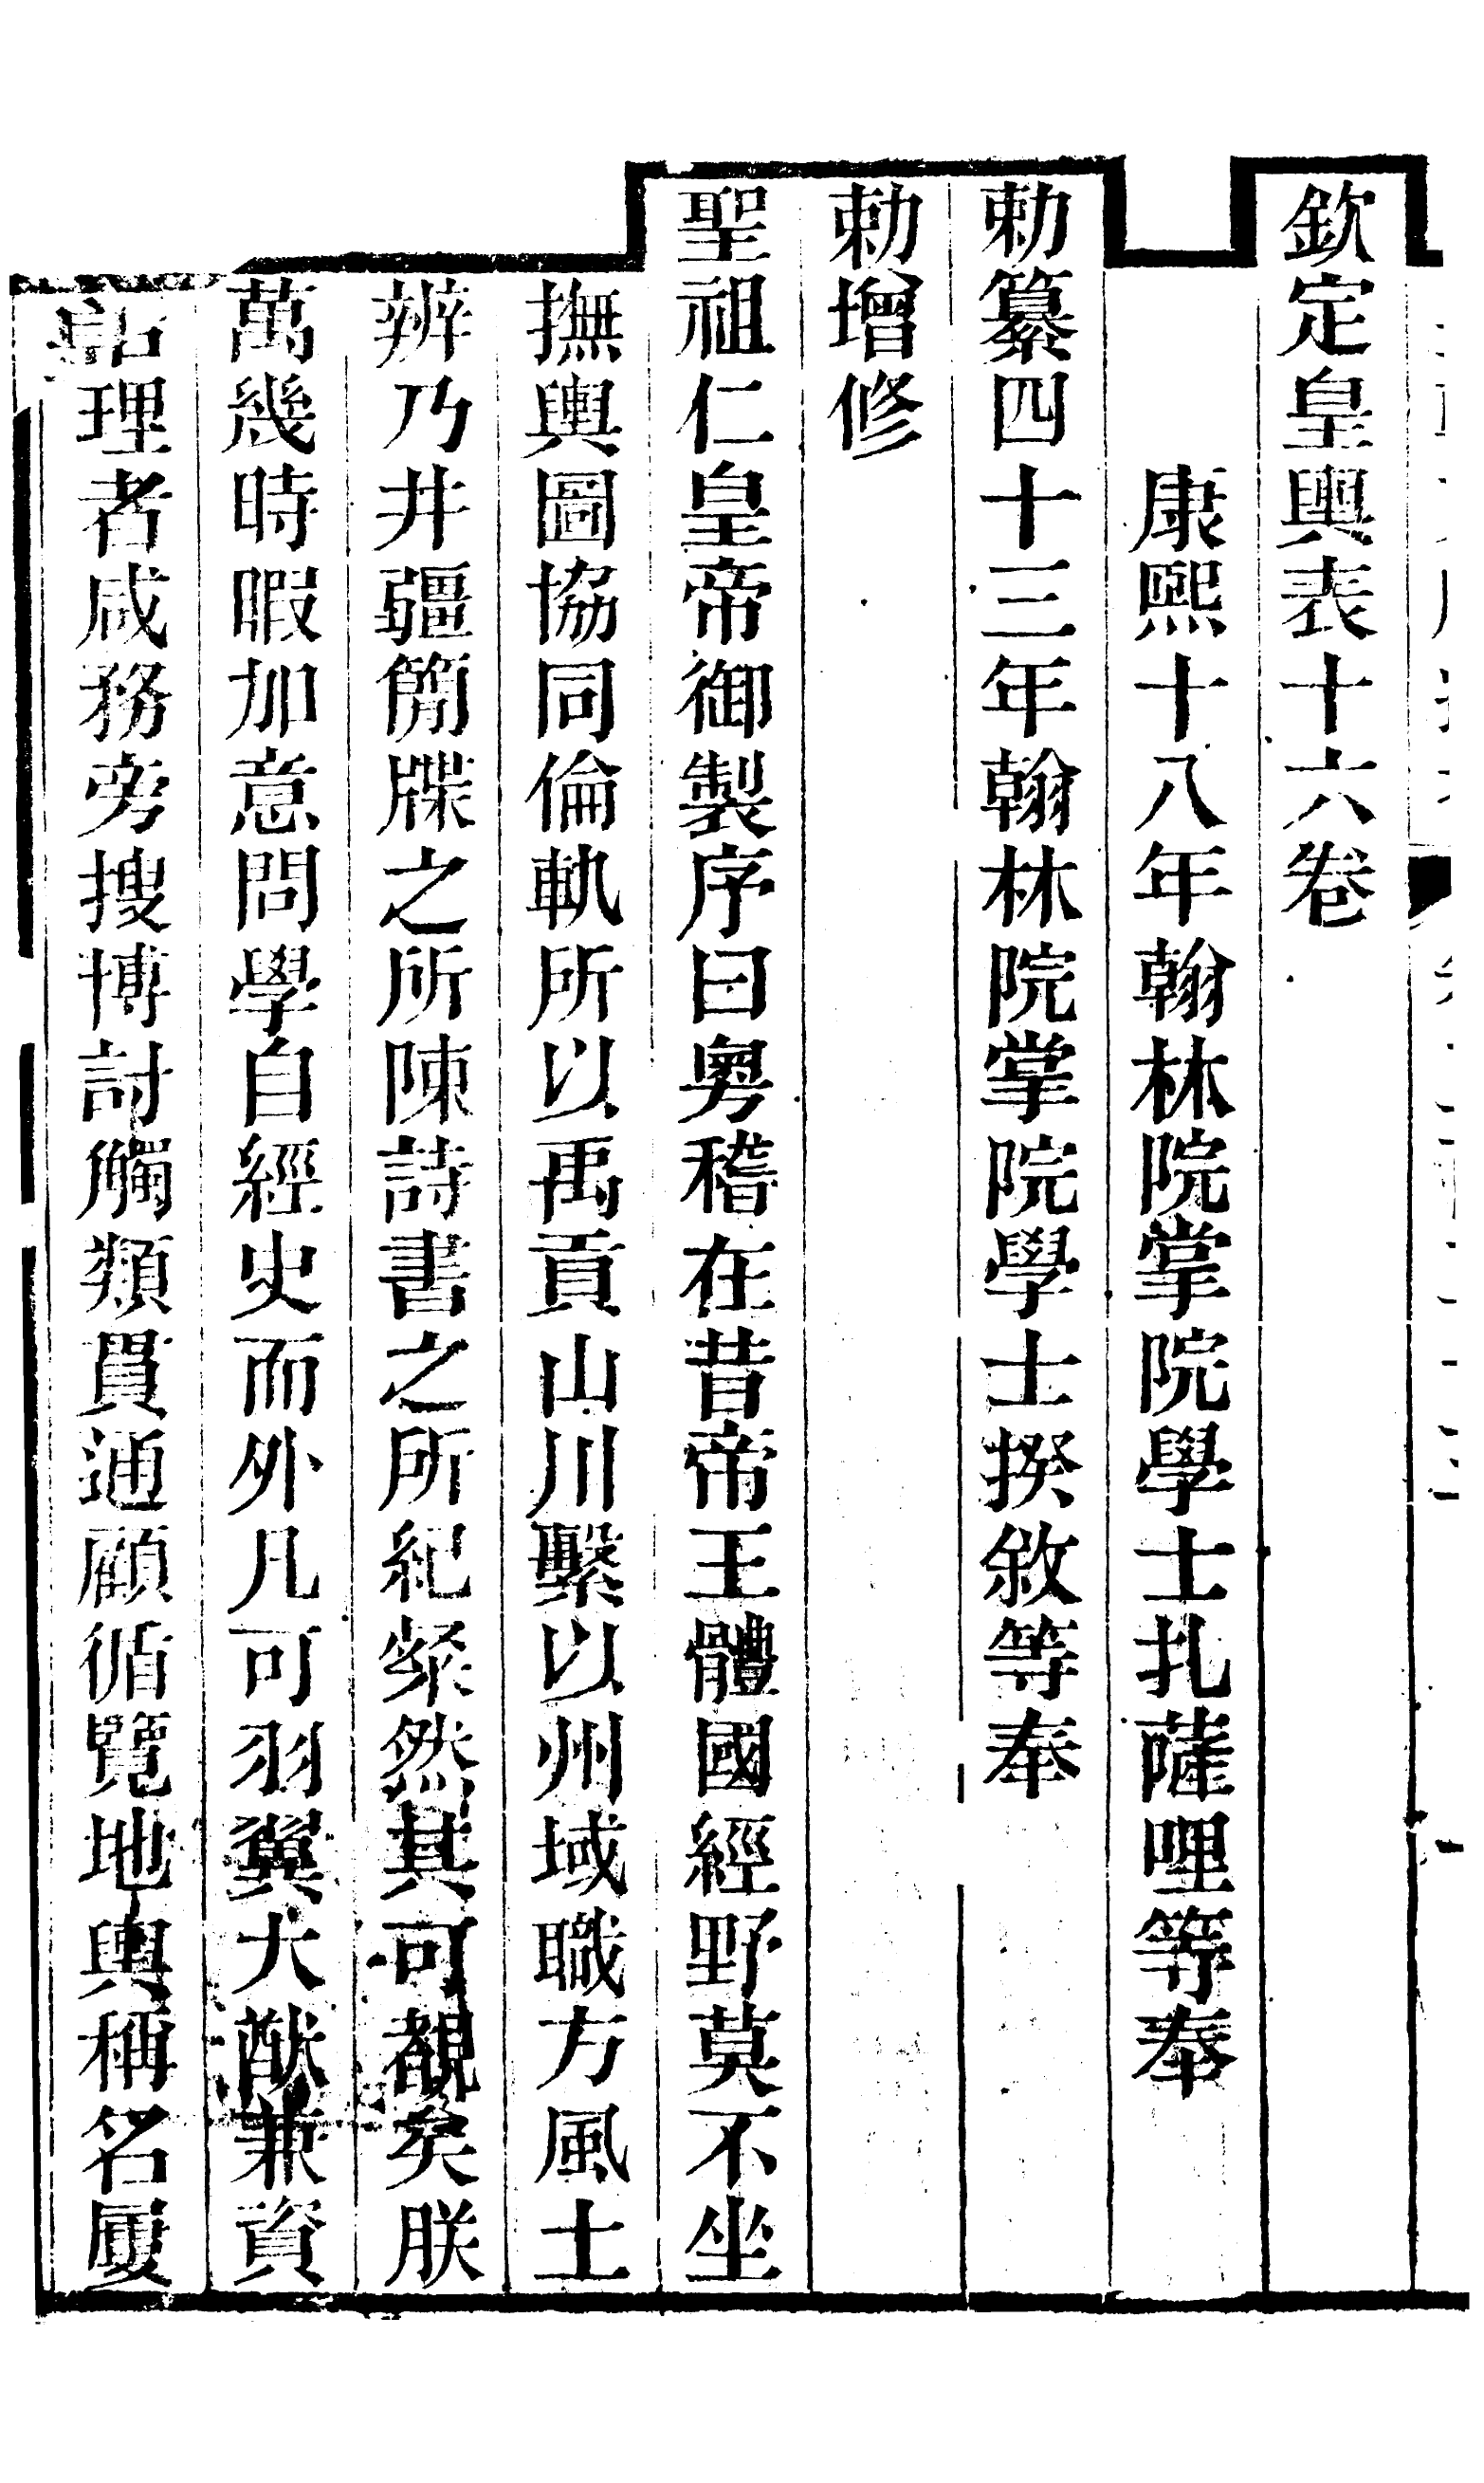 欽定皇輿表十六卷
康熙十八年翰林院掌院學士扎薩哩等奉
勅纂四十三年翰林院掌院學士揆敘等奉
勅增修
聖祖仁皇帝御製序曰粤稽在昔帝王體國經野莫不坐
撫輿圖協同倫軌所以禹貢山川繫以州域職方風土
辨乃井疆簡牒之所陳詩書之所紀粲然其可覩矣朕
萬幾時暇加意問學自經史而外凡可羽翼大猷兼資
理者咸務旁搜博討觸類貫通顧循覽地輿稱名屢